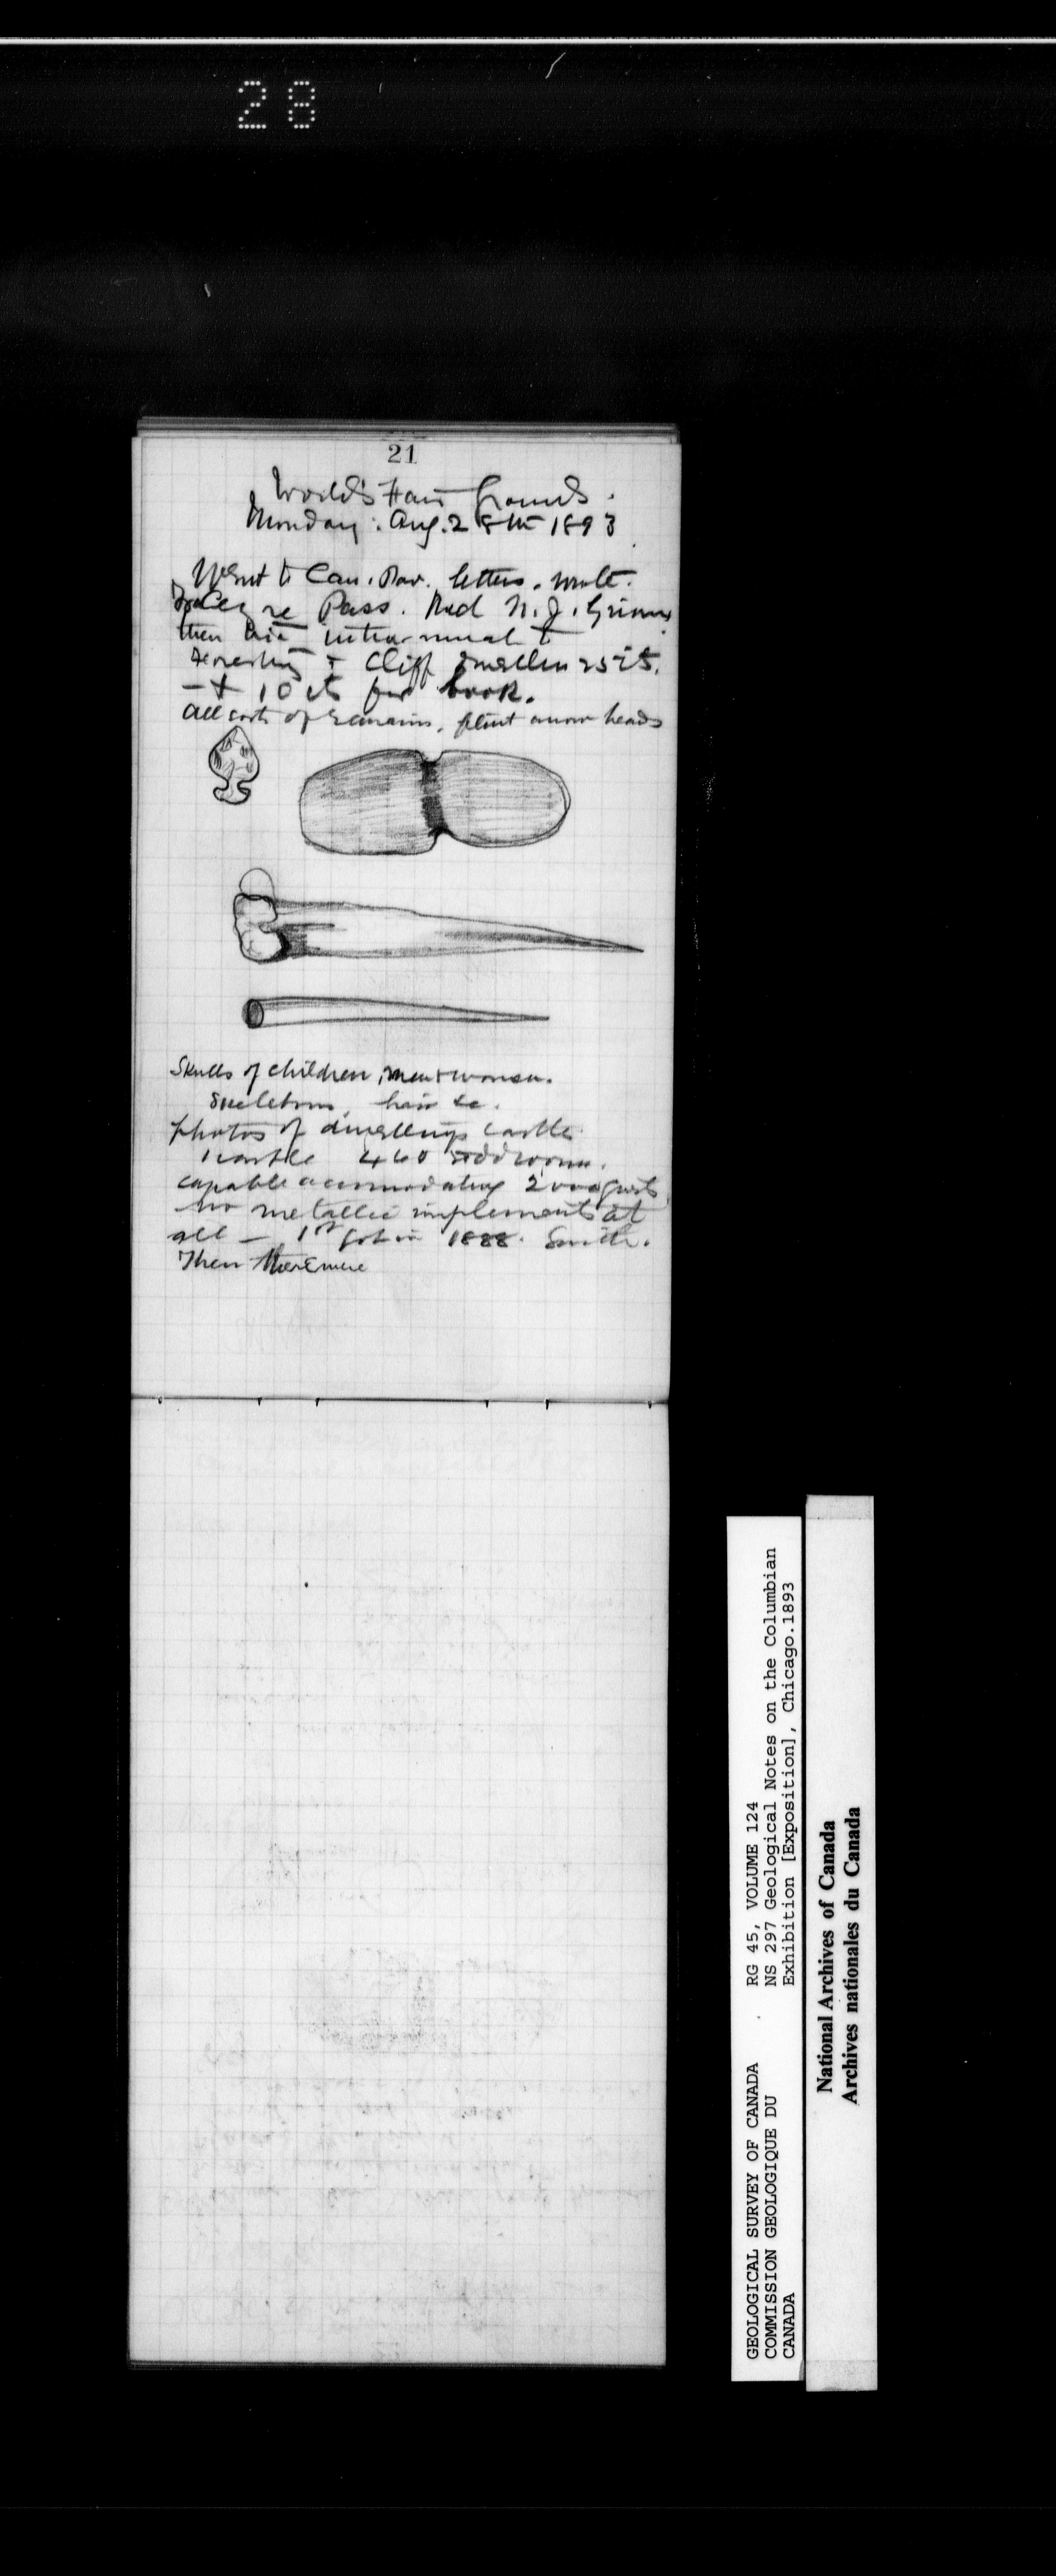 28
21
World's Fair Grounds.
Monday: Aug. 28th 1893
Went to Can. Pav. letters. wrote.
re Pass. Red N. J.
then intra-mural to
Forestry + Cliff Dwellers 25 cts.
- + 10 cts for book.
All sorts of remains, flint arrow heads
Skulls of children, men + women.
Skeletons, hair &c.
photos of dwellings castle
1 castle 460 odd rooms.
capable accomodating 2000 guests
no metallic implements at
all — 1st got in 1888. Smith.
Then there were
GEOLOGICAL SURVEY OF CANADA
COMMISSION GEOLOGIQUE DU
CANADA
RG 45, VOLUME 124
NS 297 Geological Notes on the Columbian
Exhibition [Exposition], Chicago.1893
National Archives of Canada
Archives nationales du Canada